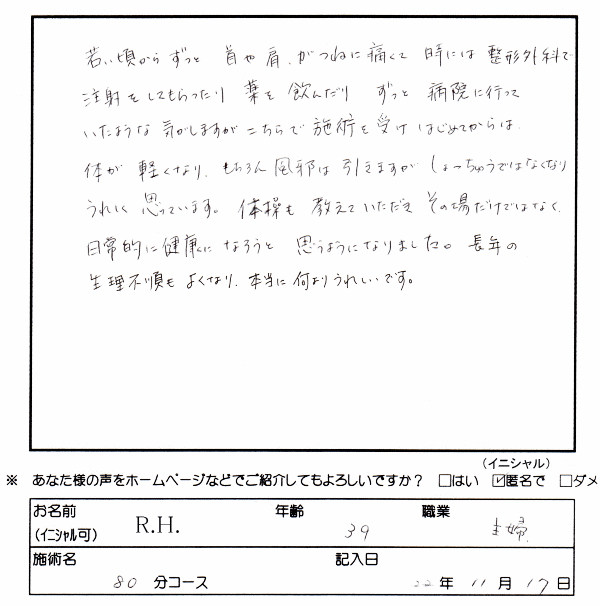 若い頃からずっと 首や肩、がつねに痛くて 時には 整形外科で
注射をしてもらったり 薬を飲んだり ずっと 病院に行って
いたような気がしますがこちらで施術を受けはじめてからは、
体が軽くなり、もちろん風邪は引きますがしょっちゅうではなくなり
うれしく思っています。体操も教えていただきその場だけではなく、
日常的に健康になろうと思うようになりました。長年の
生理不順もよくなり、本当に何よりうれしいです。
(イニシャル)
※ あなた様の声をホームページなどでご紹介してもよろしいですか？ □はい ☑匿名で □ダメ
お名前 (イニシャル可) R.H. 年齢 39 職業 主婦
施術名 80 分コース 記入日 22年 11月 17日